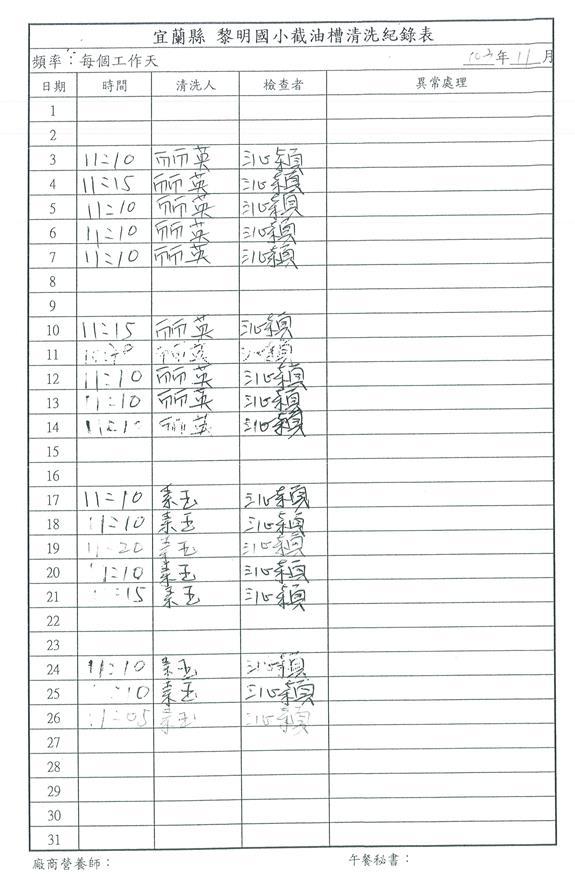 宜蘭縣 黎明國小截油槽清洗紀錄表
頻率：每個工作天 103年11月
日期 時間 清洗人 檢查者 異常處理
1
2
3 11:10 丽英 沁穎
4 11:15 丽英 沁穎
5 11:10 丽英 沁穎
6 11:10 丽英 沁穎
7 11:10 丽英 沁穎
8
9
10 11:15 丽英 沁穎
11 丽英 沁穎
12 11:10 丽英 沁穎
13 11:10 丽英 沁穎
14 丽英 沁穎
15
16
17 11:10 素玉 沁穎
18 11:10 素玉 沁穎
19 11:20 素玉 沁穎
20 11:10 素玉 沁穎
21 :15 素玉 沁穎
22
23
24 11:10 素玉 沁穎
25 :10 素玉 沁穎
26 11:05 素玉 沁穎
27
28
29
30
31
廠商營養師： 午餐秘書：